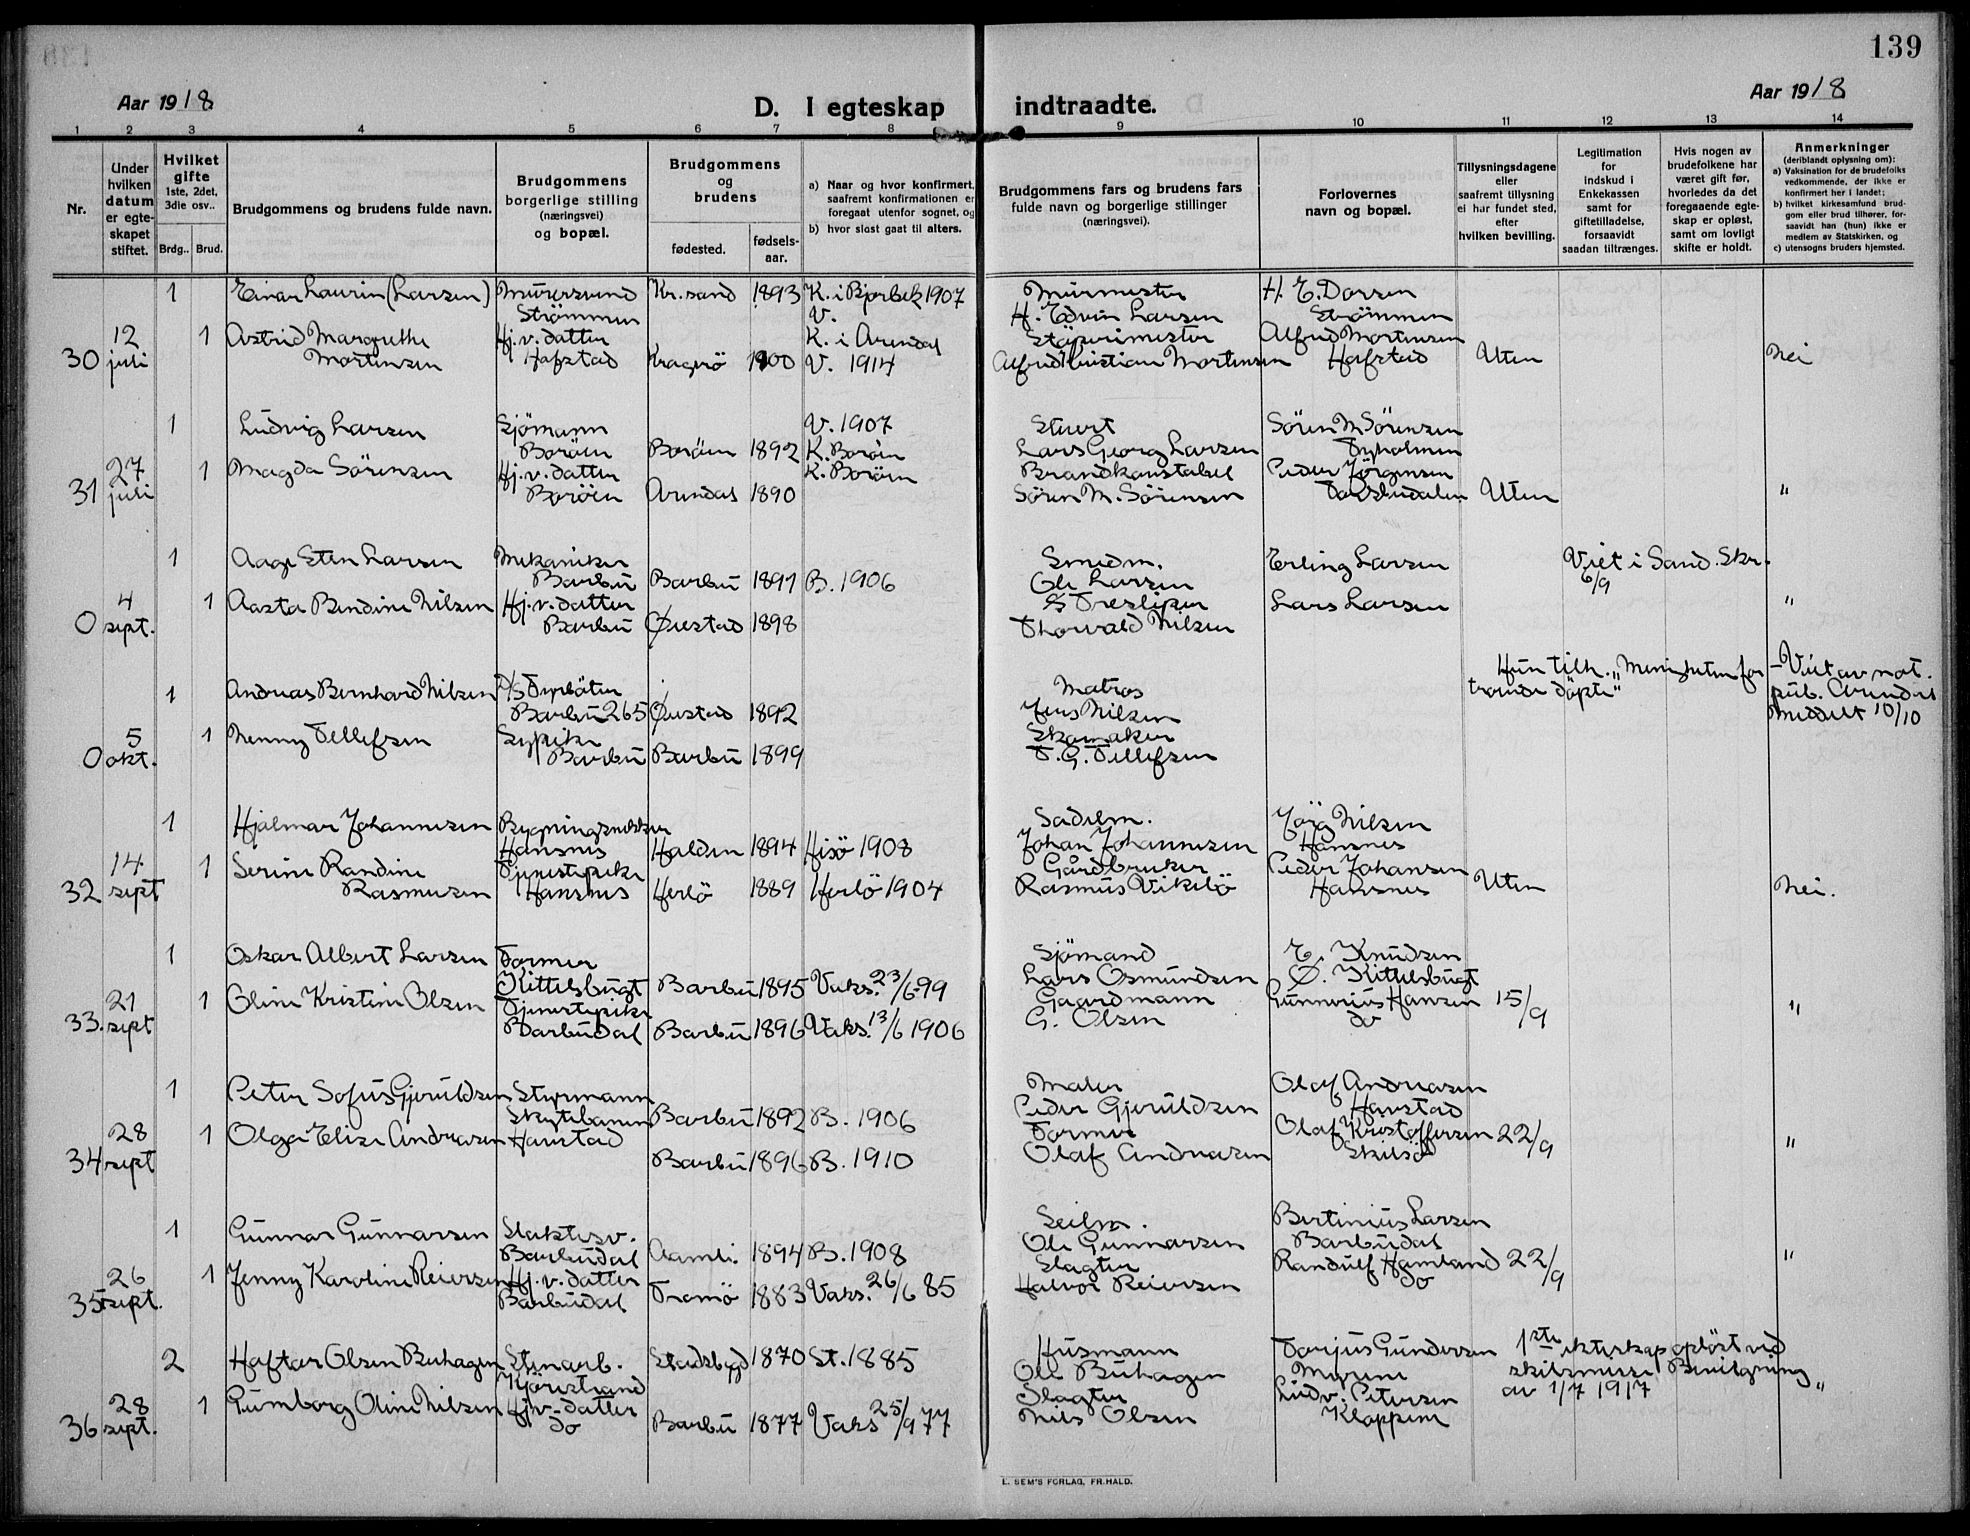 139
Aar 1918
D. I egteskap indtraadte.
Aar 1918
1 2 3 4 5 6 7 8 9 10 11 12 13 14
Nr.
Under hvilken datum er egte-skapet stiftet.
Hvilket gifte 1ste, 2det, 3die osv..
Brdg.. Brud.
Brudgommens og brudens fulde navn.
Brudgommens borgerlige stilling (næringsvei) og bopæl.
Brudgommens og brudens
fødested. fødsels-aar.
a) Naar og hvor konfirmert, saafremt konfirmationen er foregaat utenfor sognet, og
b) hvor sløst gaat til alters.
Brudgommens fars og brudens fars fulde navn og borgerlige stillinger (næringsvei).
Forlovernes navn og bopæl.
Tillysningsdagene eller saafremt tillysning ei har fundet sted, efter hvilken bevilling.
Legitimation for indskud i Enkekassen samt for giftetilladelse, forsaavidt saadan tiltrænges.
Hvis nogen av brudefolkene har været gift før, hvorledes da det foregaaende egte-skap er opløst, samt om lovligt skifte er holdt.
Anmerkninger
(deriblandt oplysning om):
a) Vaksination for de brudefolks vedkommende, der ikke er konfirmert her i landet;
b) hvilket kirkesamfund brud-gom eller brud tilhører, for-saavidt han (hun) ikke er medlem av Statskirken, og
c) utensogns bruders hjemsted.
1 Einar Laurin (Larsen) Murersvend Kr.sand 1893 K. i Bjorbek 1907 Murmester H. E. Larsen
Strömmen V. H. Edvin Larsen Strömmen
12 1 Astrid Margrethe Hj.v.datter K. i Arendal Støperimester Alfred Mortensen
30 juli Mortensen Hafstad Kragerö 1900 V. 1914 Alfred Kristian Mortensen Hafstad Uten Nei
1 Ludvig Larsen Sjömann V. 1907 Stuert Sören M Sörensen
Boröen Boröen 1892 K. Boröen Lars Georg Larsen Tyholmen
27 1 Magda Sörensen Hj.v.datter K. Boröen Brandkonstabel Peder Jörgensen
31 juli Boröen Arendal 1890 Sören M. Sörensen Uten "
1 Aage Sten Larsen Mekaniker Smedm. Erling Larsen Viet i Sand. Skr.
Barbu Barbu 1891 B. 1906 Ole Larsen 6/9
4 1 Aasta Bendine Nilsen Hj.v.datter Lars Larsen "
0 sept. Barbu Øiestad 1898 Thorvald Nilsen
Hun tilh. "Menigheten for Viet av not.
1 Andreas Bernhard Nilsen Matros troende döpte" pub. Arendal
Barbu 265 Øiestad 1892 Jens Nilsen Meddelt 10/10
5 1 Nenny Tellefsen Sypike Skomaker
0 okt. Barbu Barbu 1899 T. G. Tellefsen
1 Hjalmar Johannesen Bygningssnekker Sadelm. Nilsen
Hansnes Halden 1894 Hisö 1908 Johan Johannesen Hansnes
14 1 Serine Randine Tjenestepike Gårdbruker Peder Johansen
32 sept Rasmusen Hansnes Herlö 1889 Herlö 1904 Rasmus Vikelö Hansnes Uten Nei.
1 Oskar Albert Larsen Former Sjömand E. Knudsen
Kittelsbugt Barbu 1895 Vaks. 23/6-99 Lars Osmundsen Ø. Kittelsbugt
21 1 Oline Kristine Olsen Tjenestepike Gaardmann Gunnerius Hansen 15/9 "
33. sept Barbudal Barbu 1896 Vaks. 13/6 1906 G. Olsen do
1 Peter Sofus Gjeruldsen Styrmann Maler Olaf Andreasen
Barbu 1892 B. 1906 Peder Gjeruldsen Havstad
28 1 Olga Elise Andreasen Havstad Former Olaf Kristoffersen 22/9 "
34 sept Barbu 1896 B. 1910 Olaf Andreasen Skilsö
1 Gunnar Gunnarsen Slaktesv. Seilm. Bertinius Larsen
Barbudal Aamli. 1894 B. 1908 Ole Gunnarsen Barbudal "
26 1 Jenny Karoline Reiersen Hj.v.datter Slagter Randulf Hamland 22/9
35 sept. Barbudal Tromö 1883 Vaks. 26/6 85 Halvor Reiersen do
2 Haftar Olsen Buhagen Stenarb. Stadsbygd 1870 St. 1885 Husmann Torjus Gundersen 1ste ekteskap oplöst ved
Kjörestrand Ole Buhagen Myrene skilsmisse Bevilgning "
28 1 Gunborg Oline Nilsen Hjv.datter Slagter Ludv. Petersen av 1/7 1917
36 sept. do Barbu 1877 Vaks 25/9 77 Nils Olsen Kloppene
E. SEM'S FORLAG, FR.HALD.